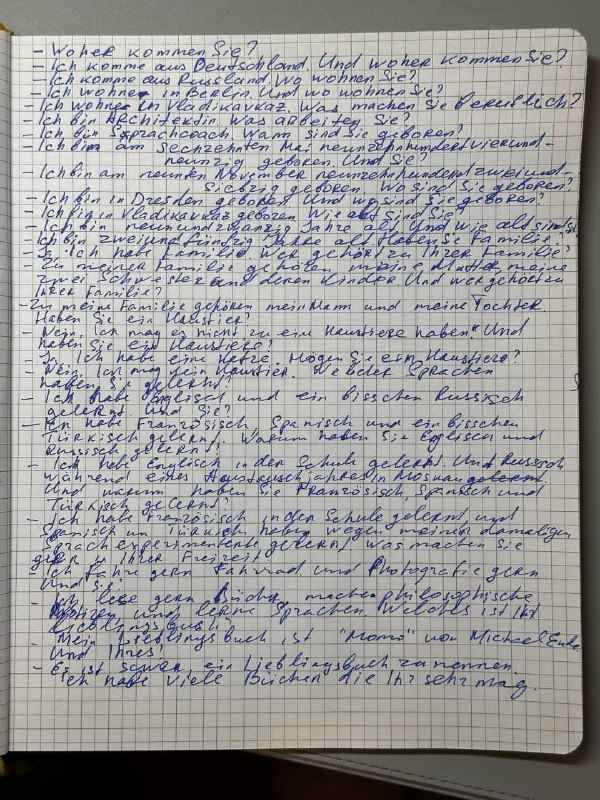 - Woher kommen Sie?
- Ich komme aus Deutschland. Und woher kommen Sie?
- Ich komme aus Russland. Wo wohnen Sie?
- Ich wohne in Berlin. Und wo wohnen Sie?
- Ich wohne in Vladikavkaz. Was machen Sie beruflich?
- Ich bin Architektin. Was arbeiten Sie?
- Ich bin Sprachcoach. Wann sind Sie geboren?
- Ich bin am sechzehnten Mai neunzehnhundertvierund-
neunzig geboren. Und Sie?
- Ich bin am neunten November neunzehnhundertzweiund-
siebzig geboren. Wo sind Sie geboren?
- Ich bin in Dresden geboren. Und wo sind Sie geboren?
- Ich bin in Vladikavkaz geboren. Wie alt sind Sie?
- Ich bin neunundzwanzig Jahre alt. Und wie alt sind Sie
- Ich bin zweiundfünfzig Jahre alt. Haben Sie Familie?
- Ja, Ich habe Familie. Wer gehört zu Ihrer Familie?
- Zu meiner Familie gehören meine Mutter, meine
zwei Schwester und deren Kinder. Und wer gehört zu
Ihrer Familie?
- Zu meine Familie gehören mein Mann und meine Tochter.
Haben Sie ein Haustier?
- Nein, Ich mag es nicht zu eine Haustiere haben. Und
haben Sie ein Haustiere?
- Ja, Ich habe eine Katze. Mögen Sie ein Haustiere?
- Nein, Ich mag kein Haustier. Welcher Sprachen
haben Sie gelernt?
- Ich habe Englisch und ein bisschen Russisch
gelernt. Und Sie?
- Ich habe Französisch, Spanisch und ein bisschen
Türkisch gelernt. Warum haben Sie Englisch und
Russisch gelernt?
- Ich habe Englisch in der Schule gelernt. Und Russisch
während eines Austauschjahres in Moskau gelernt
Und warum haben Sie Französisch, Spanisch und
Türkisch gelernt?
- Ich habe Französisch in der Schule gelernt und
Spanisch un Türkisch haben wegen meiner damaligen
Sprachexperimente gelernt. Was machen Sie
gern in Ihrer Freizeit?
- Ich Fahre gern Fahrrad und Photografie gern
Und Sie?
- Ich lese gern Bücher, machen philosophische
Notizen und lerne Sprachen. Welches ist Ihr
Lieblingsbuch?
- Mein Lieblingsbuch ist "Momo" von Michael Ende
Und Ihres?
- Es ist schwer, ein Lieblingsbuch zu nennen.
Ich habe viele Büchen die Ihr sehr mag.